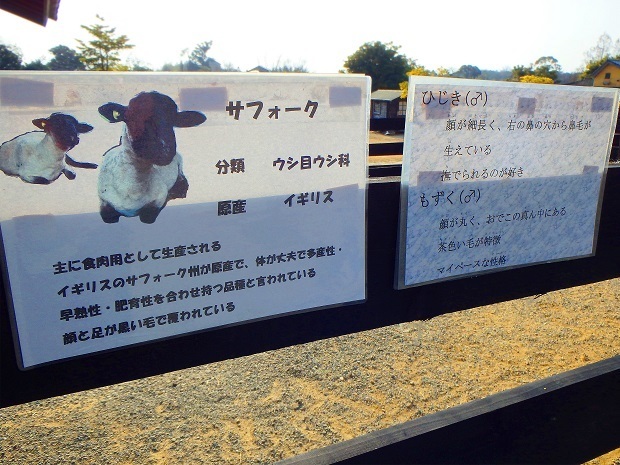 サフォーク
分類 ウシ目ウシ科
原産 イギリス
主に食肉用として生産される
イギリスのサフォーク州が原産で、体が丈夫で多産性・
早熟性・肥育性を合わせ持つ品種と言われている
顔と足が黒い毛で覆われている
ひじき(♂)
顔が細長く、右の鼻の穴から鼻毛が
生えている
撫でられるのが好き
もずく(♂)
顔が丸く、おでこの真ん中にある
茶色い毛が特徴
マイペースな性格